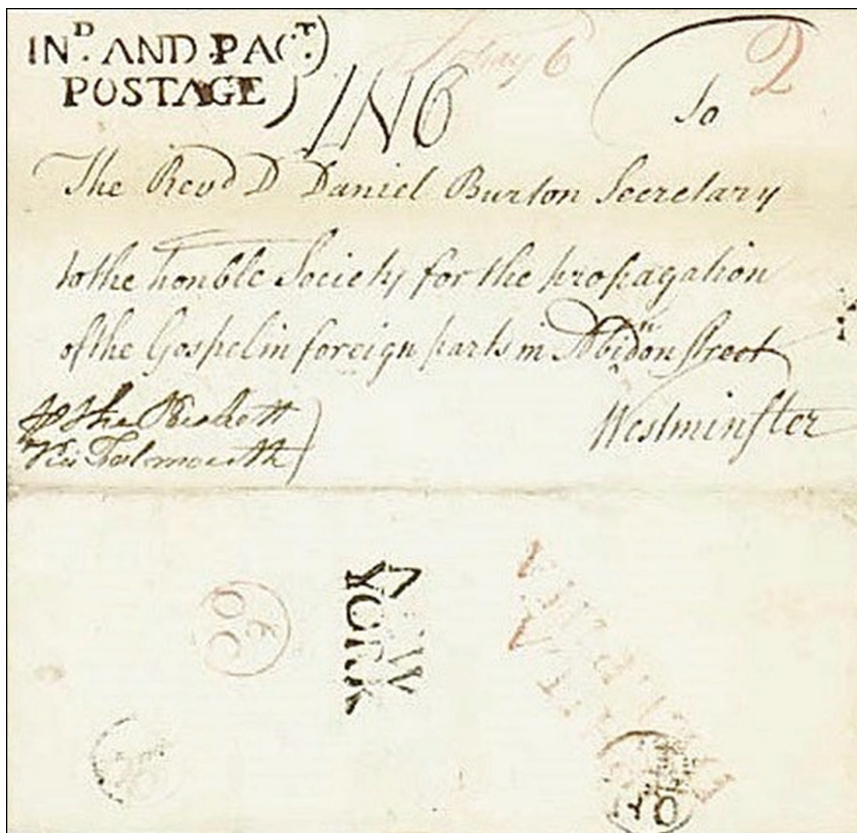 IN.D AND PAC.T)
POSTAGE)
1N6
To
2
The Revd D Daniel Burton Secretary
to the honble Society for the propagation
of the Gospel in foreign parts in Abidon Street
Westminster
Via Falmouth
NEW
YORK